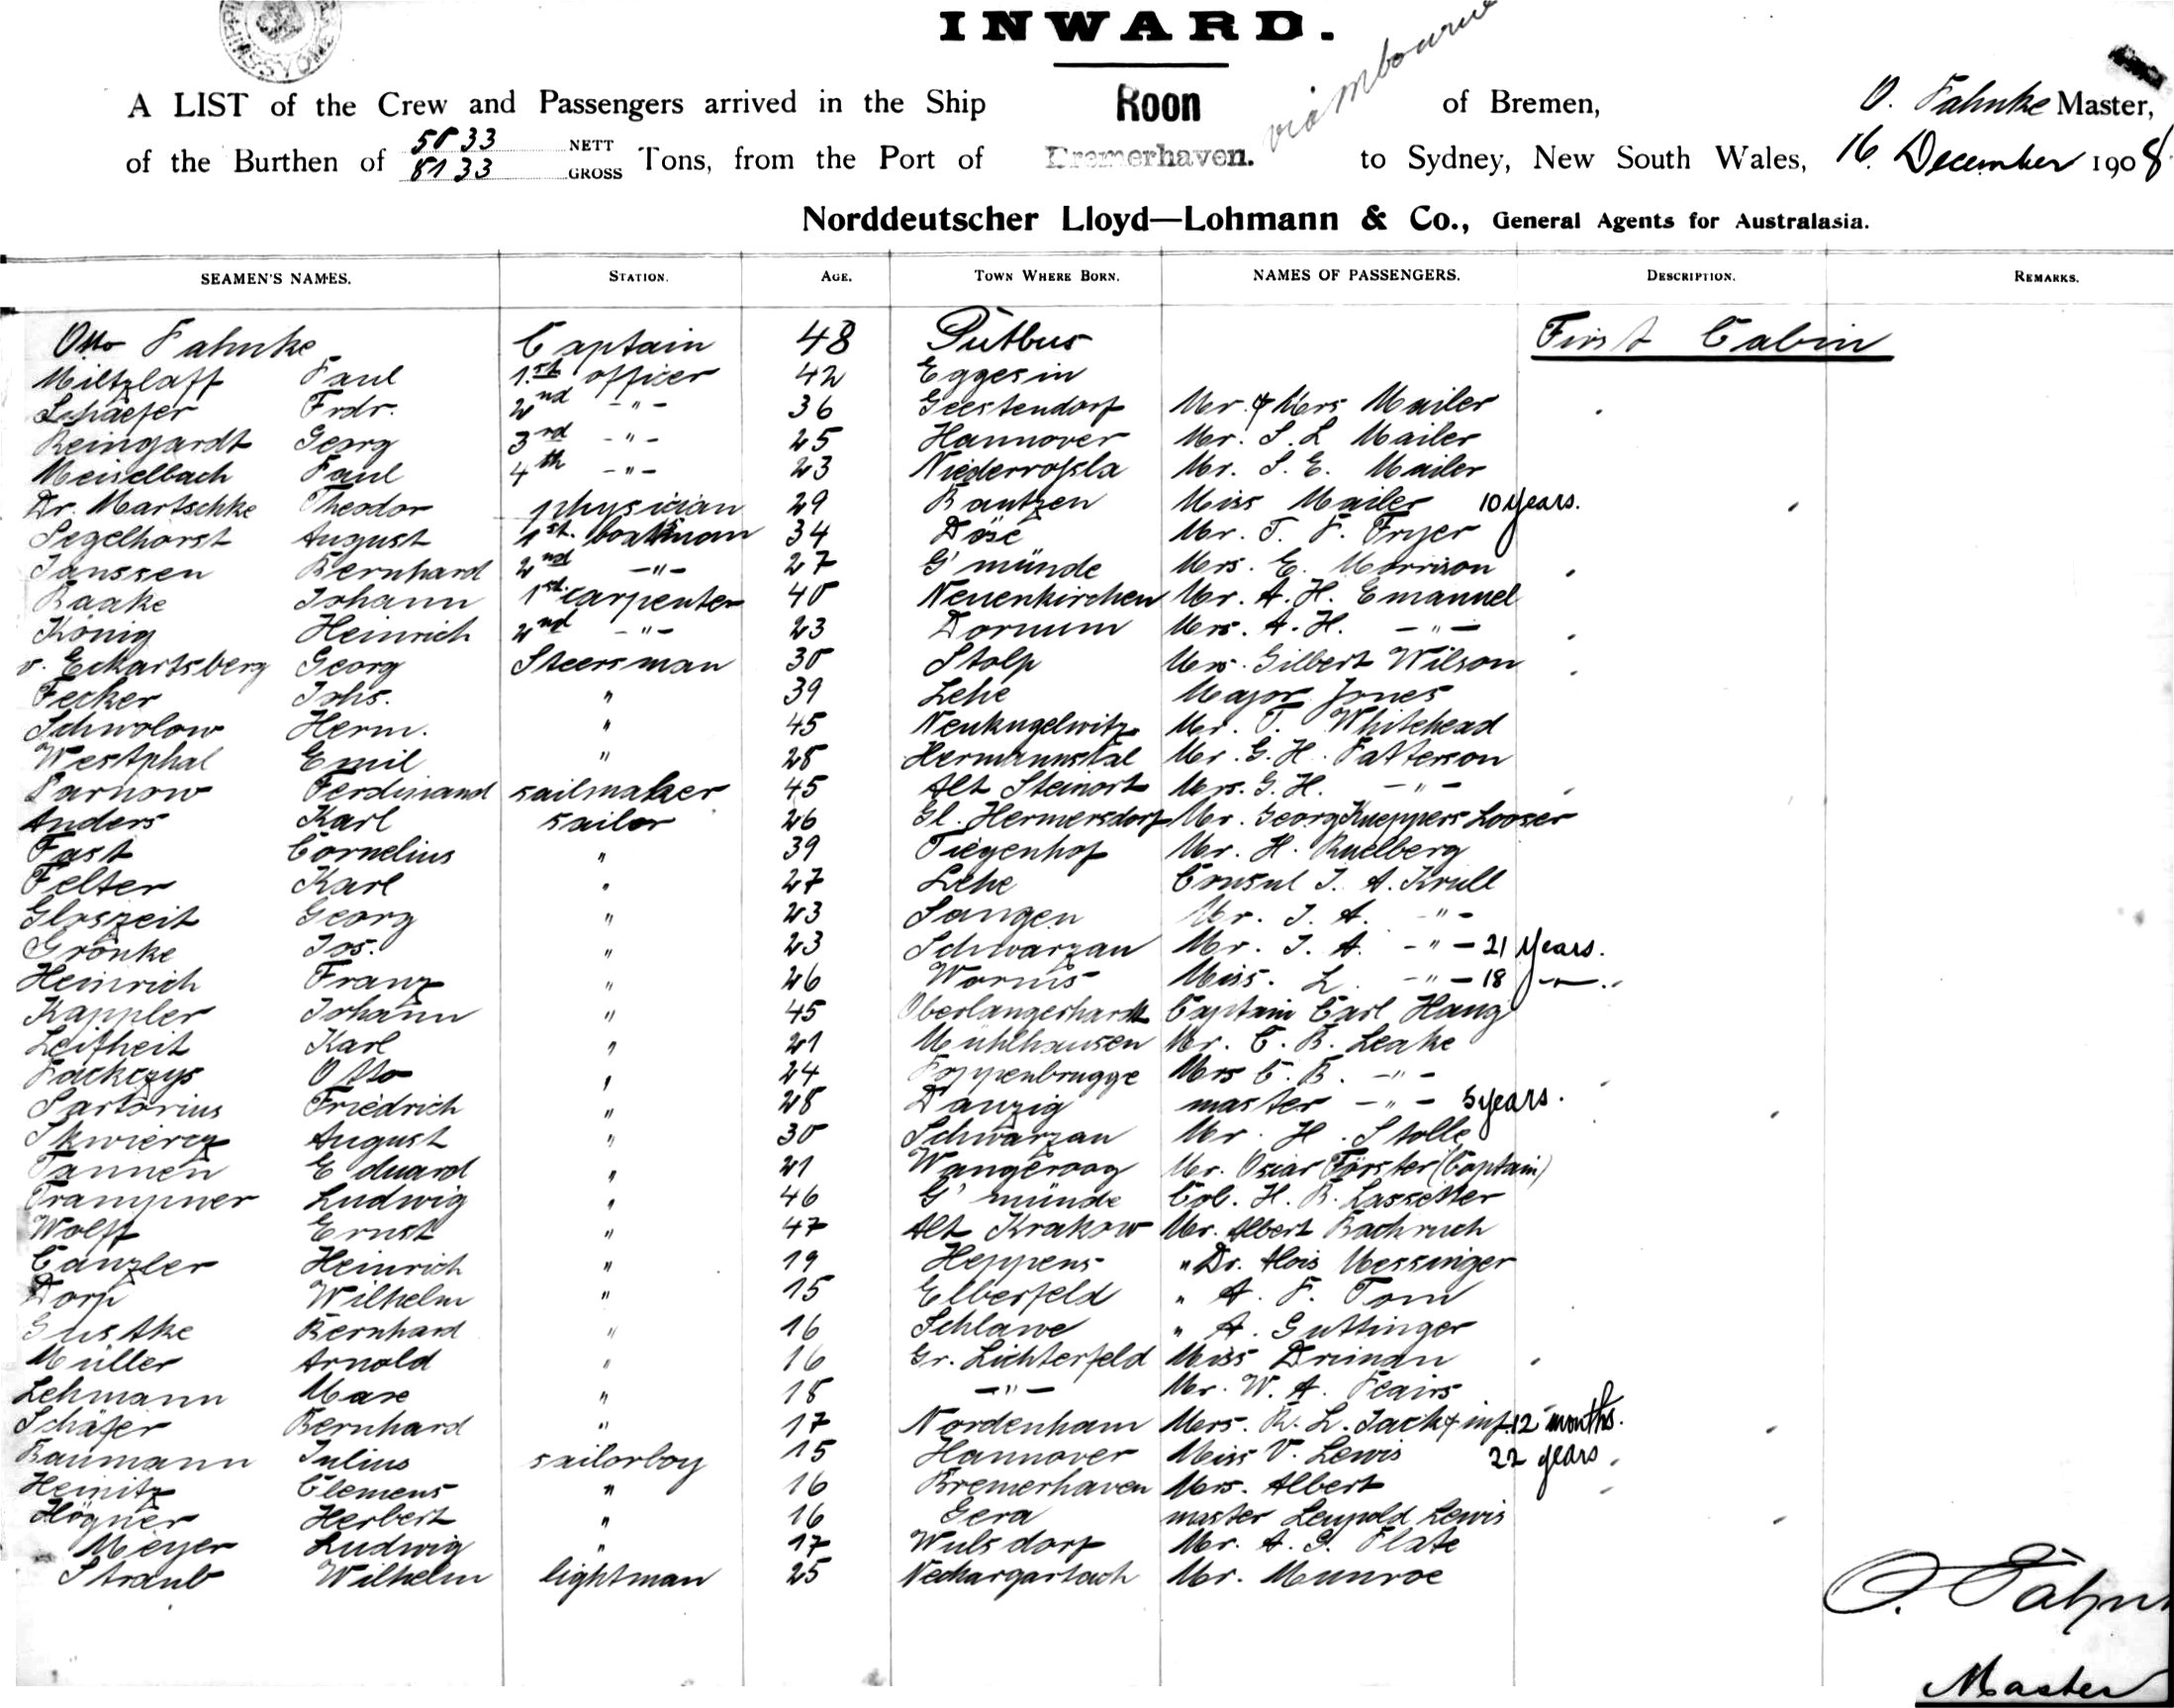 INWARD.
via Melbourne
A LIST of the Crew and Passengers arrived in the Ship Roon of Bremen, O. Fahnke Master,
of the Burthen of 5033 NETT 8133 GROSS Tons, from the Port of Bremerhaven. to Sydney, New South Wales, 16. December 1908
Norddeutscher Lloyd—Lohmann & Co., General Agents for Australasia.
SEAMEN'S NAMES. STATION. AGE. TOWN WHERE BORN. NAMES OF PASSENGERS. DESCRIPTION. REMARKS.
Otto Fahnke Captain 48 Putbus First Cabin
Miltzlaff Paul 1.st officer 42 Eggesin
Schaefer Frdr. 2nd -"- 36 Geestendorf Mr. & Mrs Mailer
Reingardt Georg 3rd -"- 25 Hannover Mr. S. L Mailer
Meiselbach Paul 4th -"- 23 Niederrossla Mr. S. E. Mailer
Dr. Martschke Theodor physician 29 Bautzen Miss Mailer 10 years.
Segelhorst August 1st. boatsman 34 Döse Mr. T. F. Fryer
Janssen Bernhard 2nd -"- 27 G'münde Mrs. E. Morrison
Baake Johann 1st. carpenter 40 Neuenkirchen Mr. A. H. Emanuel
König Heinrich 2nd -"- 23 Dornum Mrs. A. H. -"-
v. Eckartsberg Georg Steersman 30 Stolp Mrs. Gilbert Wilson
Fecker Johs. " 39 Lehe Major Jones
Schwolow Herm. " 45 Neukugelwitz Mr. T. Whitehead
Westphal Emil " 28 Hermannstal Mr. G. H. Patterson
Parnow Ferdinand sailmaker 45 Alt Steinort Mrs. G. H. -"-
Anders Karl sailor 26 Gl. Hermersdorf Mr. Georg Kueppers Looser
Fast Cornelius " 39 Tiegenhof Mr. H. Ruelberg
Felter Karl " 27 Lehe Consul J. A. Krull
Glaszeit Georg " 23 Langen Mr. J. A. -"-
Grönke Jos. " 23 Schwarzau Mr. J. A. -"- 21 years.
Heinrich Franz " 26 Worms Miss. L. -"- 18 -"-
Kappler Johann " 45 Oberlangerhardt Captain Carl Haug
Leitheit Karl " 21 Mühlhausen Mr. C. B. Leake
Packczys Otto " 24 Koppenbrugge Mrs C. B. -"-
Sartorius Friedrich " 28 Danzig master -"- 5 years.
Skwiercz August " 30 Schwarzau Mr. H. Stolle
Tannen Eduard " 21 Wangeroog Mr. Oscar Förster (Captain)
Trampner Ludwig " 46 G'münde Col. H. B. Lassetter
Wolff Ernst " 47 Alt Krakow Mr. Albert Bachruch
Canzler Heinrich " 19 Heppens " Dr. Alois Messinger
Dorp Wilhelm " 15 Elberfeld " A. F. Tom
Gustke Bernhard " 16 Schlawe " A. Guttinger
Müller Arnold " 16 Gr. Lichterfeld Miss Drinan
Lehmann Max " 18 -"- Mr. W. A. Peairs
Schäfer Bernhard " 17 Nordenham Mrs. R. L. Jack & inf. 12 months.
Baumann Julius sailorboy 15 Hannover Miss V. Lewis 22 years.
Heinitz Clemens " 16 Bremerhaven Mrs. Albert
Högner Herbert " 16 Gera master Leopold Lewis
Meyer Ludwig " 17 Wulsdorf Mr. A. G. Plate
Straub Wilhelm lightman 25 Neckargartach Mr. Munroe
O. Fahn
Master